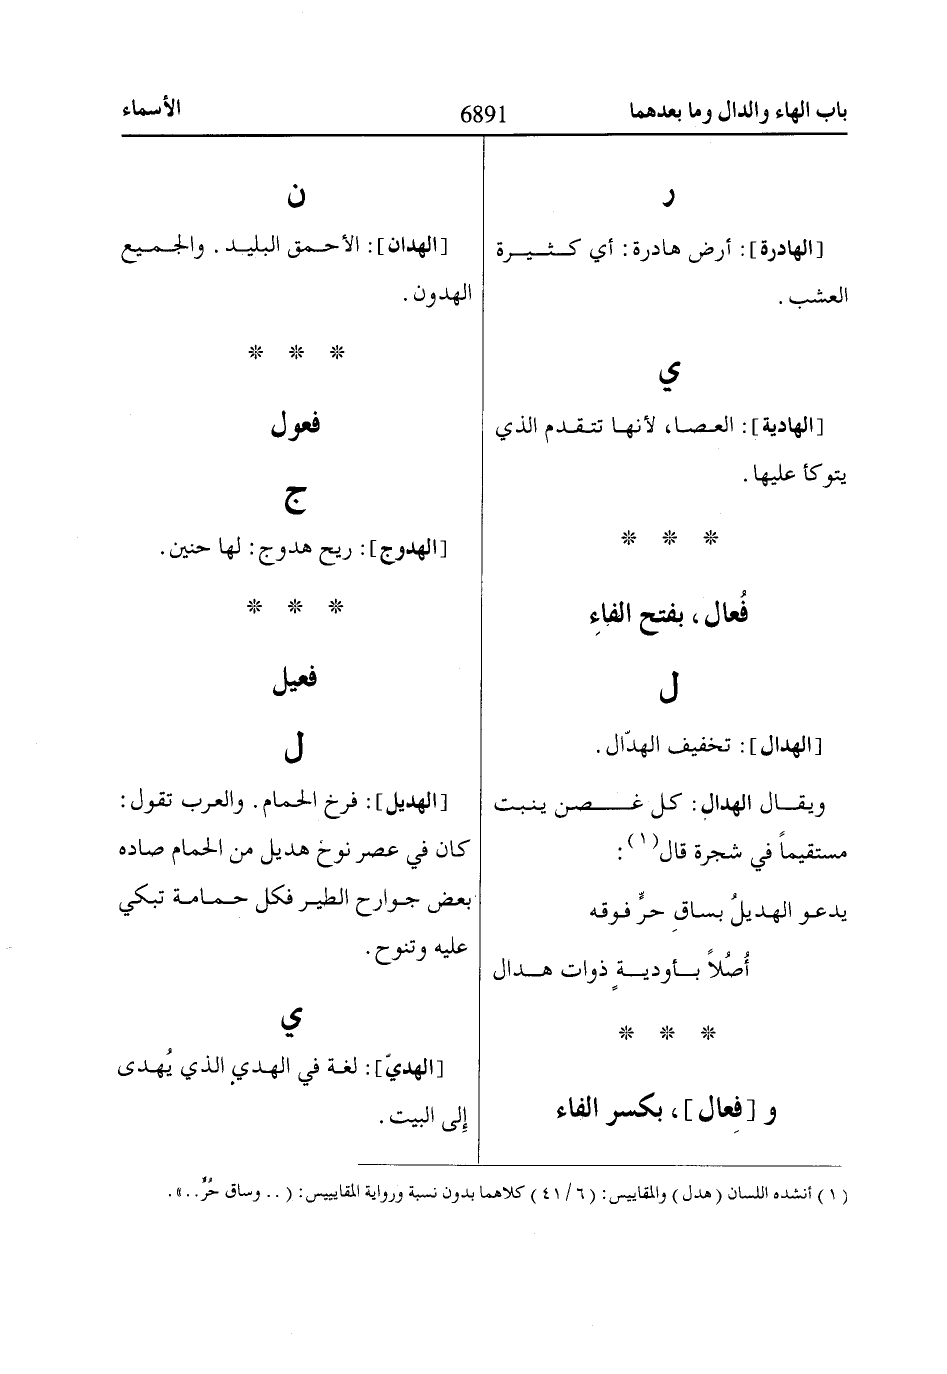 باب الهاء والدال وما بعدهما 6891 الأسماء
ر
[الهادرة]: أرض هادرة: أي كثيرة
العشب.
ي
[الهادية]: العصا، لأنها تتقدم الذي
يتوكأ عليها.
* * *
فُعال، بفتح الفاءِ
ل
[الهدال]: تخفيف الهدّال.
ويقال الهدال: كل غصن ينبت
مستقيماً في شجرة قال(١):
يدعو الهديلُ بساقِ حرٍّ فوقه
أُصُلاً بأوديةٍ ذوات هدال
* * *
و [فِعال]، بكسر الفاء
ن
[الهدان]: الأحمق البليد. والجميع
الهدون.
* * *
فعول
ج
[الهدوج]: ريح هدوج: لها حنين.
* * *
فعيل
ل
[الهديل]: فرخ الحمام. والعرب تقول:
كان في عصر نوح هديل من الحمام صاده
بعض جوارح الطير فكل حمامة تبكي
عليه وتنوح.
ي
[الهديّ]: لغة في الهديِ الذي يُهدى
إلى البيت.
(١) أنشده اللسان (هدل) والمقاييس: (٤١/٦) كلاهما بدون نسبة ورواية المقاييس: (.. وساق حُرٌّ..».